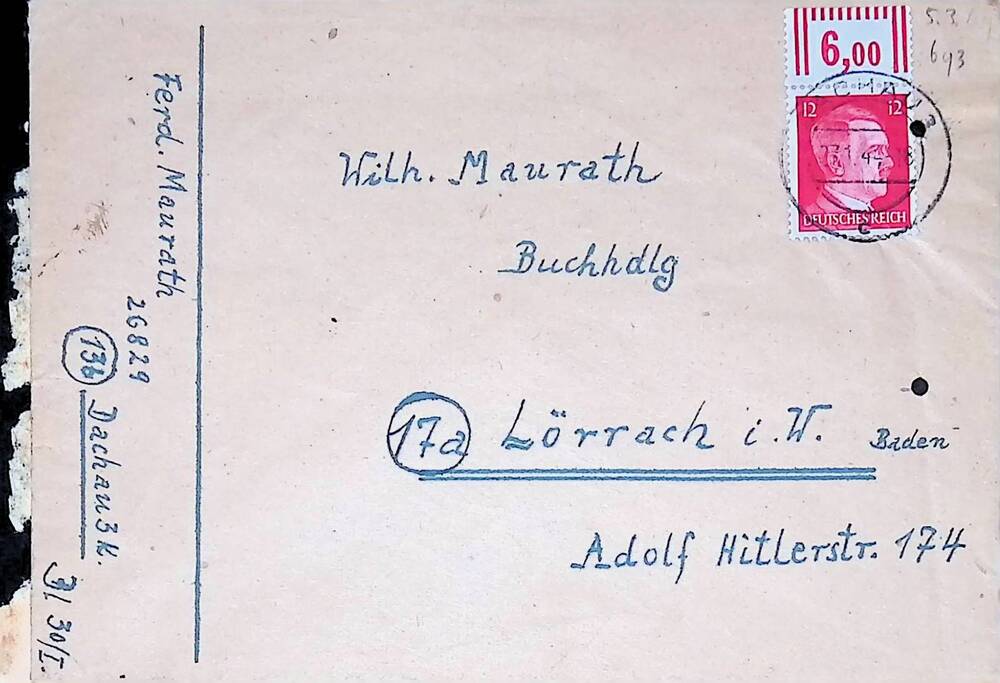 6,00
12 12
DEUTSCHES REICH
c
693
Wilh. Maurath
Buchhdlg
17a Lörrach i. W. Baden
Adolf Hitlerstr. 174
Ferd. Maurath
26829
13b Dachau 3 K.
30/I.